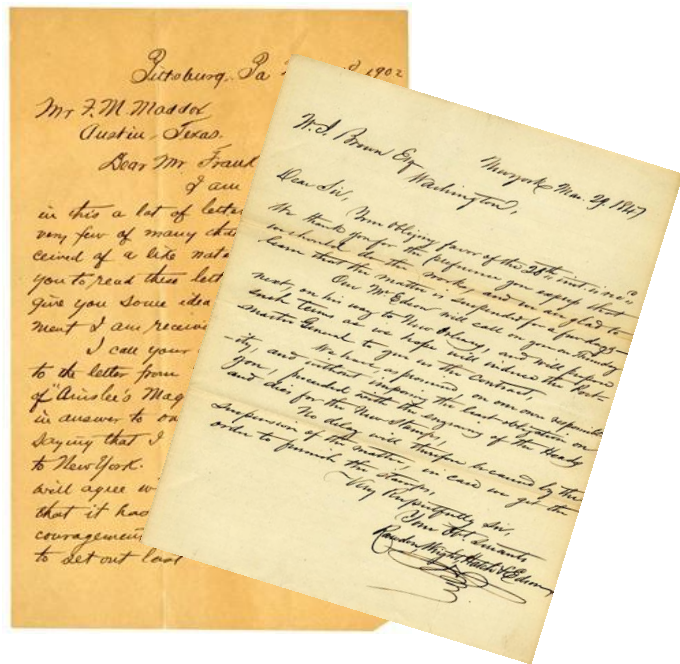 Pittsburg, Pa 1902
Mr F. M. Maddox
Austin, Texas.
Dear Mr Frank
I am
in this a lot of letter
very few of many
ceived of a like nat
you to read these lett
give you some idea
ment I am receiv
I call your
to the letter from
of "Ainslee's Mag
in answer to on
saying that I
to New York.
will agree w
that it has
couragement
to set out last
W. J. Brown Esq
Washington,
New York Mar. 29. 1847
Dear Sir,
Your obliging favor of the 28th inst. is rec'd
We thank you for the preference you express that
we should do the work, and we are glad to
learn that the matter is suspended for a few days
Our Mr Edson will call on you on Tuesday
next, on his way to New Orleans, and will propose
such terms as we hope will induce the Post-
master General to give us the contract,
We have, as promised on our own responsibil
-ity, and without imposing the least obligation on
you, proceeded with the engraving of the Heads
and dies for the New Stamps,
No delay will therefore be caused by the
suspension of the matter, in case we get the
order to furnish the stamps,
Very Respectfully Sir,
Your Obt Servants
Rawdon, Wright, Hatch & Edson